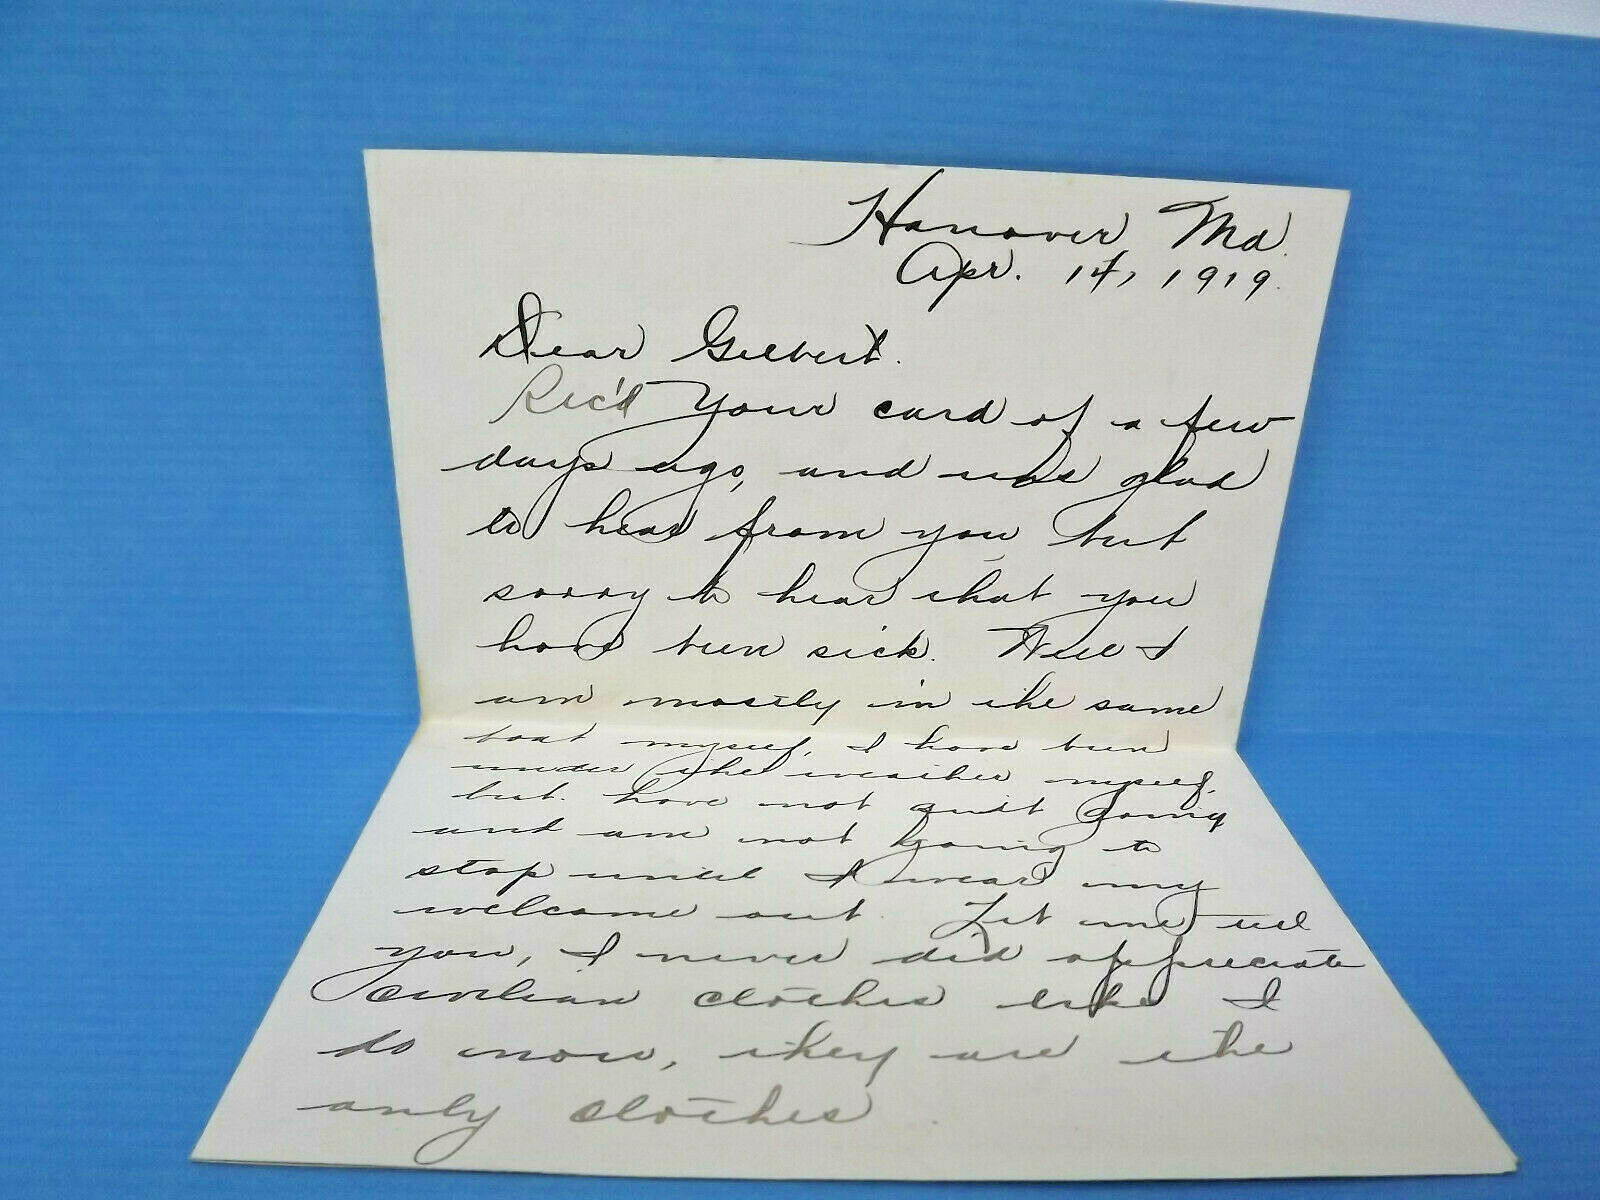 Hanover Md.
Apr. 14, 1919.
Dear Gilbert.
Rec'd your card of a few
days ago, and was glad
to hear from you, but
sorry to hear that you
have been sick. Well I
am mostly in the same
boat myself, I have been
under the weather myself,
but have not quit going
and am not going to
stop until I wear my
welcome out. Let me tell
you, I never did appreciate
civilian clothes like I
do now, they are the
only clothes.